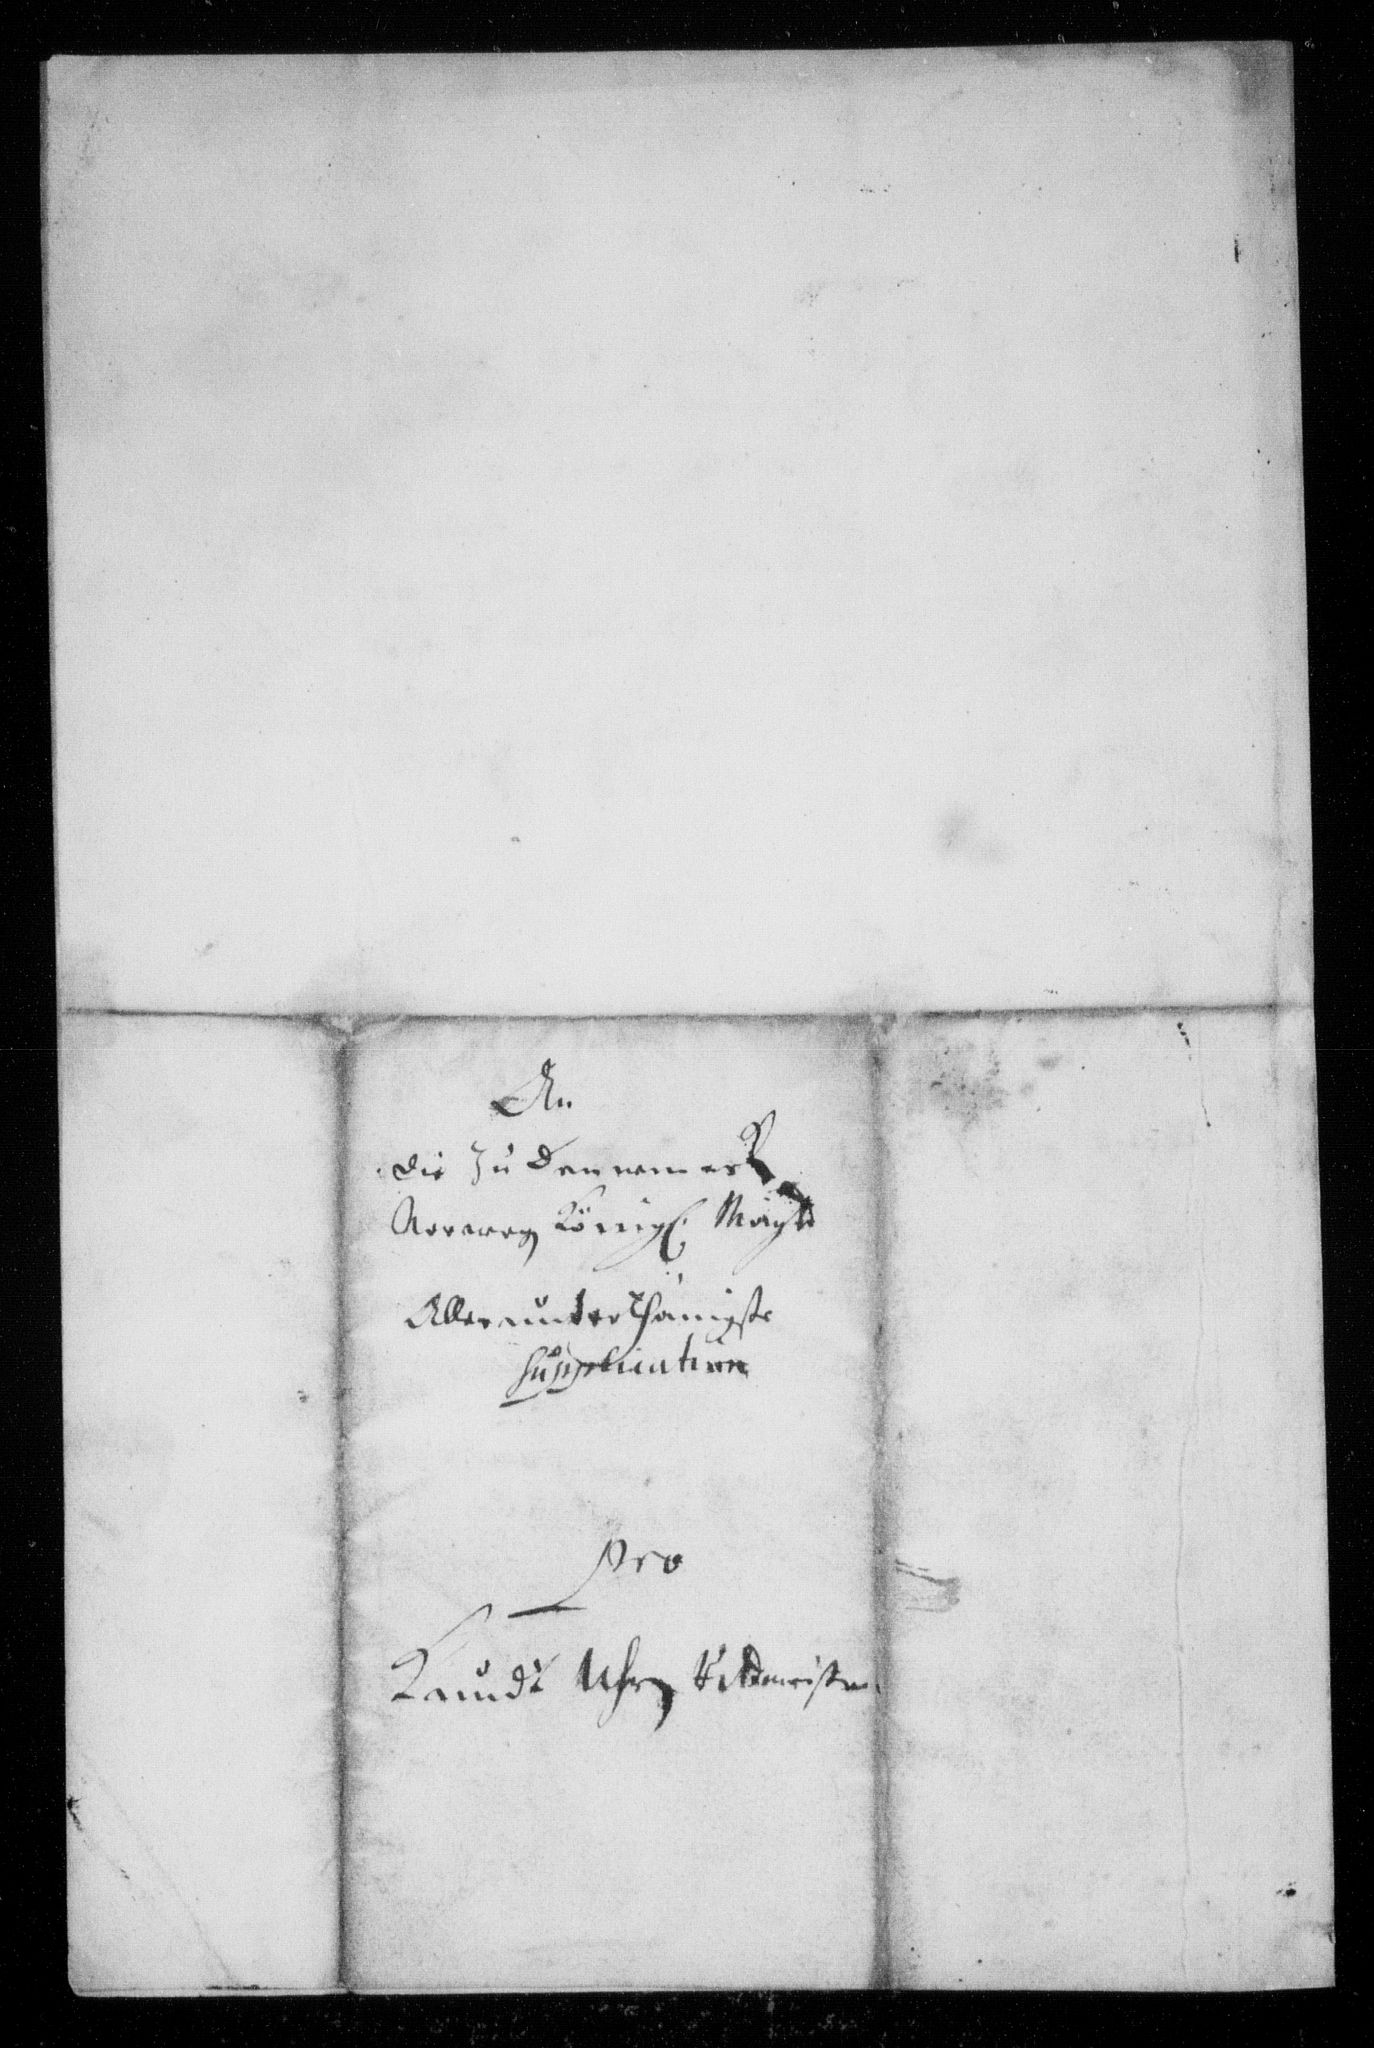 An
die Zu Dennemarck
Norweg Königl. Mayts
Allerunterthänigste
Supplication
Pro
Knudt Uhrz